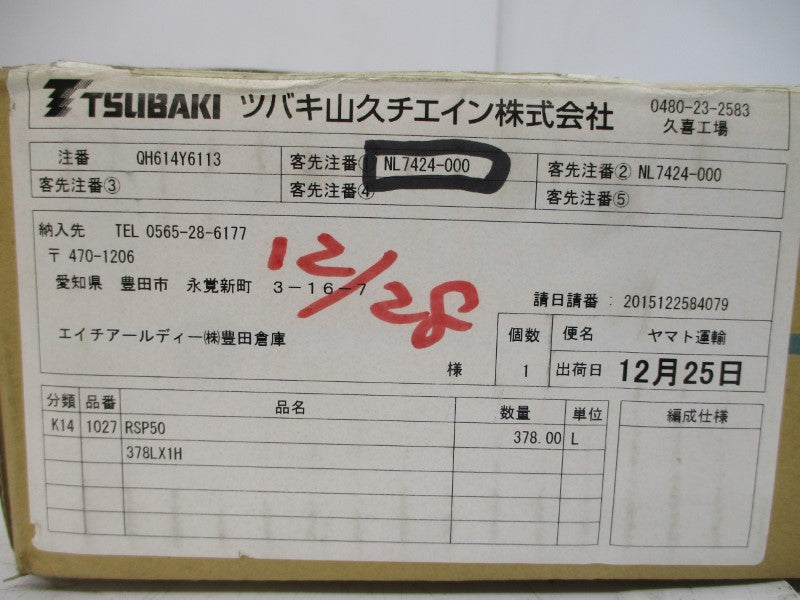 TSUBAKI ツバキ山久チエイン株式会社 0480-23-2583
久喜工場
注番 QH614Y6113 客先注番① NL7424-000 客先注番② NL7424-000
客先注番③ 客先注番④ 客先注番⑤
納入先 TEL 0565-28-6177
〒 470-1206
愛知県 豊田市 永覚新町 3-16-7
12/28
請日請番 : 2015122584079
エイチアールディー㈱豊田倉庫
様
個数 便名 ヤマト運輸
1 出荷日 12月25日
分類 品番 品名 数量 単位 編成仕様
K14 1027 RSP50 378.00 L
378LX1H